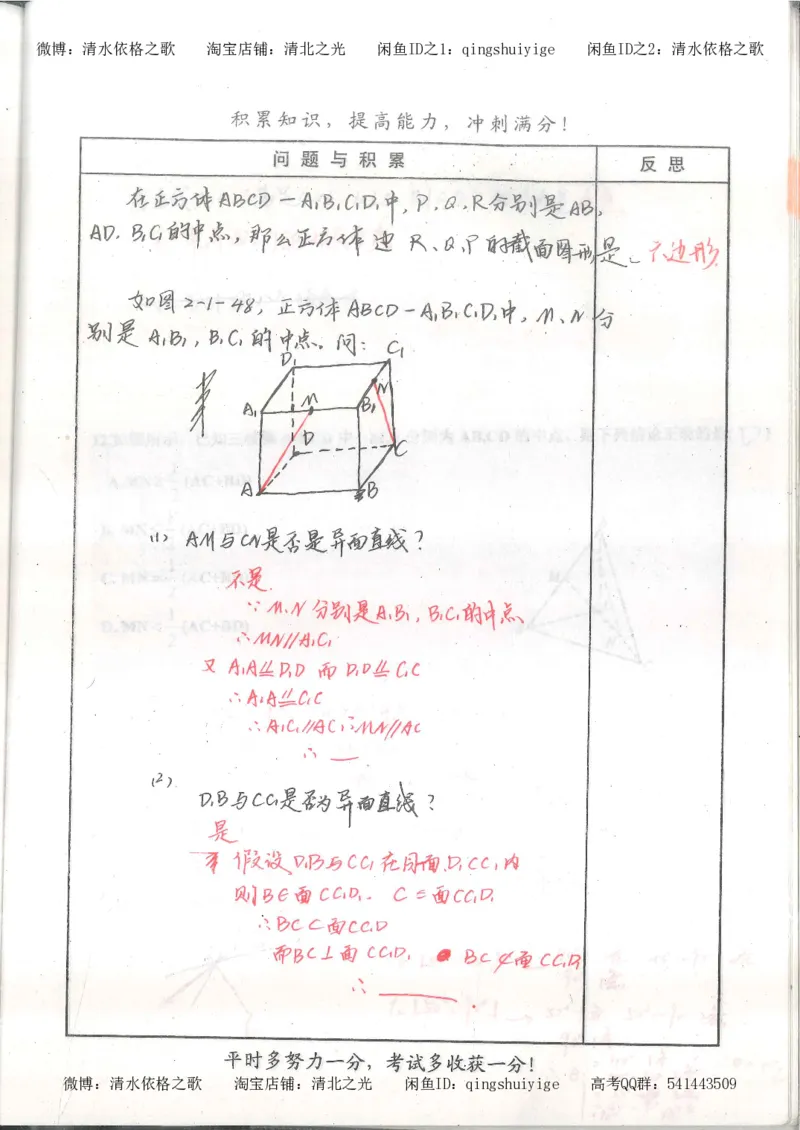 微博：清水依格之歌 淘宝店铺：清北之光 闲鱼ID之1：qingshuiyige 闲鱼ID之2：清水依格之歌
积累知识，提高能力，冲刺满分！
问题与积累 反思
在正方体ABCD－A₁B₁C₁D₁中，P、Q、R分别是AB、
AD、B₁C₁的中点，那么正方体过R、Q、P的截面图形是、六边形
如图2-1-48，正方体ABCD－A₁B₁C₁D₁中，M、N分
别是A₁B₁，B₁C₁的中点。问：
D₁ C₁
A₁ M B₁ N
D C
A B
(1) AM与CN是否是异面直线？
不是
∵M、N分别是A₁B₁，B₁C₁的中点
∴MN∥A₁C₁
又A₁A⫫D₁D 而D₁D⫫C₁C
∴A₁A⫫C₁C
∴A₁C₁∥AC ∴MN∥AC
∴ ＿
(2)
D₁B与CC₁是否为异面直线？
是
假设D₁B与CC₁在同面D₁CC₁内
则B∈面CC₁D₁. C∈面CC₁D₁
∴BC⊂面CC₁D
而BC⊥面CC₁D₁ BC⊄面CC₁D₁
∴ ＿＿＿.
平时多努力一分，考试多收获一分！
微博：清水依格之歌 淘宝店铺：清北之光 闲鱼ID：qingshuiyige 高考QQ群：541443509